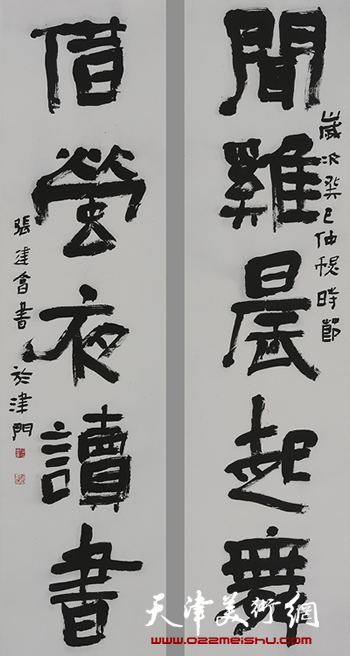 聞雞晨起舞
歲次癸巳仲槐時節
借螢夜讀書
張建會書於津門
天津美術網
www.022meishu.com